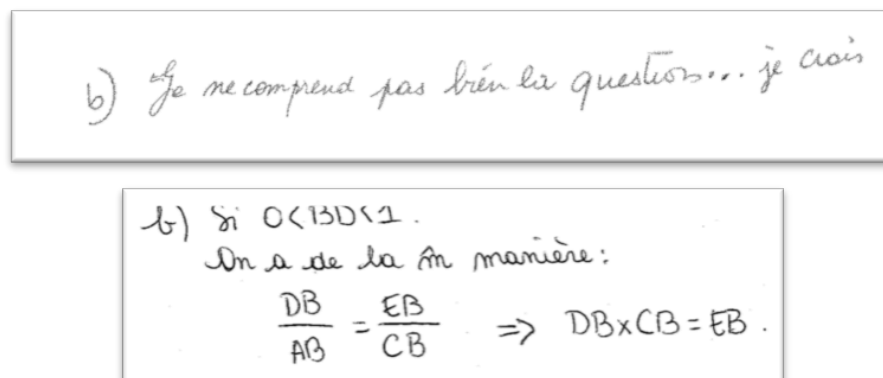 b) Je ne comprend pas bien la question... je crois
b) Si 0<BD<1.
On a de la m̂ manière:
DB/AB = EB/CB => DB×CB = EB.